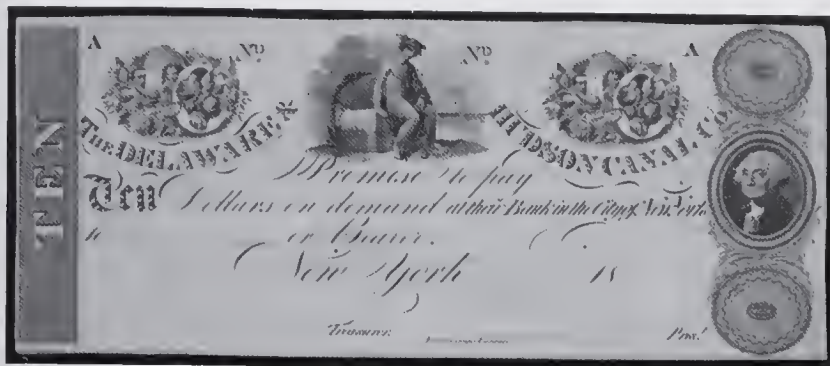 TEN
A No. No. A
The DELAWARE & HUDSON CANAL CO.
Promise to pay
Ten Dollars on demand at their Bank in the City of New York
to or Bearer.
New York 18
Treasurer. Pres.t